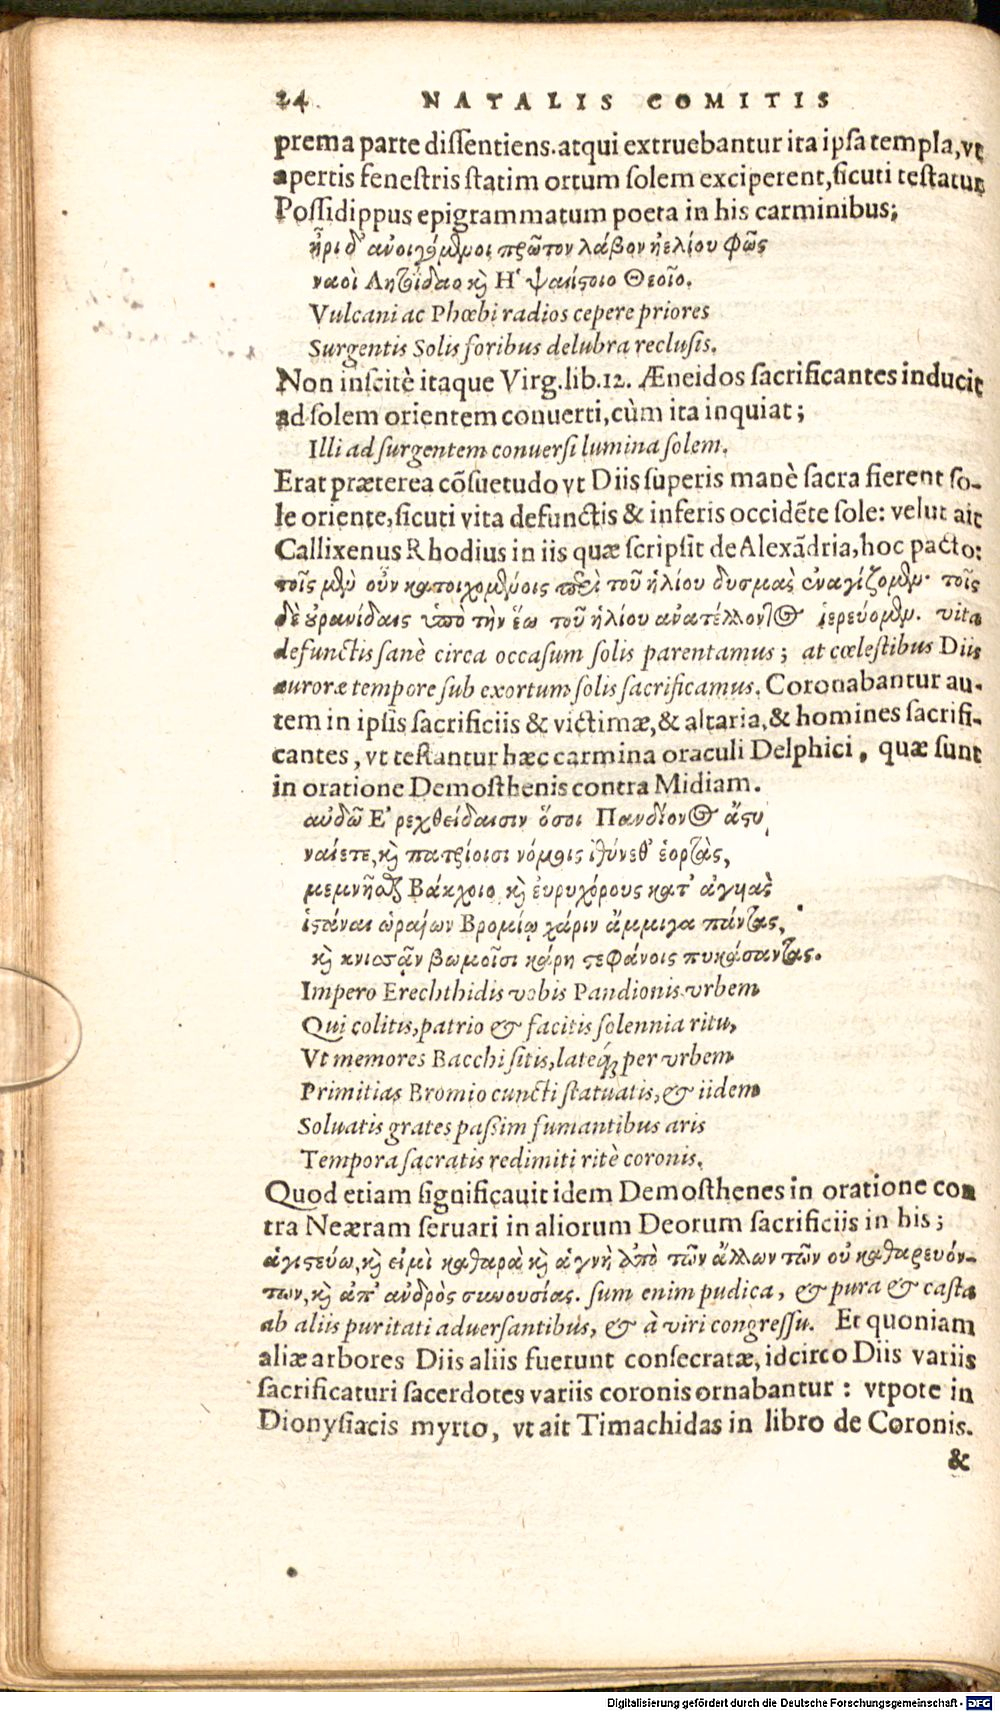 24 NATALIS COMITIS
prema parte dissentiens. atqui extruebantur ita ipsa templa, vt
apertis fenestris statim ortum solem exciperent, sicuti testatur
Possidippus epigrammatum poeta in his carminibus;
ἦρι δ' ἀνοιγόμενοι πρῶτον λάβον ἠελίου φῶς
ναοὶ Λητοΐδαο καὶ Ἡφαίστοιο Θεοῖο.
Vulcani ac Phœbi radios cepere priores
Surgentis Solis foribus delubra reclusis.
Non inscitè itaque Virg. lib. 12. Æneidos sacrificantes inducit
ad solem orientem conuerti, cùm ita inquiat;
Illi ad surgentem conuersi lumina solem.
Erat præterea cõsuetudo vt Diis superis manè sacra fierent so-
le oriente, sicuti vita defunctis & inferis occidẽte sole: velut ait
Callixenus Rhodius in iis quæ scripsit de Alexãdria, hoc pacto:
τοῖς μὲν οὖν κατοιχομένοις περὶ τοῦ ἡλίου δυσμὰς ἐναγίζομεν. τοῖς
δὲ οὐρανίδαις ὑπὸ τὴν ἕω τοῦ ἡλίου ἀνατέλλοντος ἱερεύομεν. vita
defunctis sanè circa occasum solis parentamus; at cœlestibus Diis
auroræ tempore sub exortum solis sacrificamus. Coronabantur au-
tem in ipsis sacrificiis & victimæ, & altaria, & homines sacrifi-
cantes, vt testantur hæc carmina oraculi Delphici, quæ sunt
in oratione Demosthenis contra Midiam.
αὐδῶ Ἐρεχθείδαισιν ὅσοι Πανδίονος ἄστυ
ναίετε, καὶ πατρίοισι νόμοις ἰθύνεθ' ἑορτὰς,
μεμνῆσθαι Βάκχοιο, καὶ εὐρυχόρους κατ' ἀγυιὰς
ἱστάναι ὡραίων Βρομίῳ χάριν ἄμμιγα πάντας,
καὶ κνισσᾷν βωμοῖσι κάρη στεφάνοις πυκάσαντας.
Impero Erechthidis vobis Pandionis vrbem
Qui colitis, patrio & facitis solennia ritu,
Vt memores Bacchi sitis, lateq́; per vrbem
Primitias Bromio cuncti statuatis, & iidem
Soluatis grates passim fumantibus aris
Tempora sacratis redimiti ritè coronis.
Quod etiam significauit idem Demosthenes in oratione con
tra Neæram seruari in aliorum Deorum sacrificiis in his;
ἁγιστεύω, καὶ εἰμὶ καθαρὰ καὶ ἁγνὴ ἀπὸ τῶν ἄλλων τῶν οὐ καθαρευόν-
των, καὶ ἀπ' ἀνδρὸς συνουσίας. sum enim pudica, & pura & casta
ab aliis puritati aduersantibus, & à viri congressu. Et quoniam
aliæ arbores Diis aliis fuerunt consecratæ, idcirco Diis variis
sacrificaturi sacerdotes variis coronis ornabantur: vtpote in
Dionysiacis myrto, vt ait Timachidas in libro de Coronis.
&
Digitalisierung gefördert durch die Deutsche Forschungsgemeinschaft - DFG